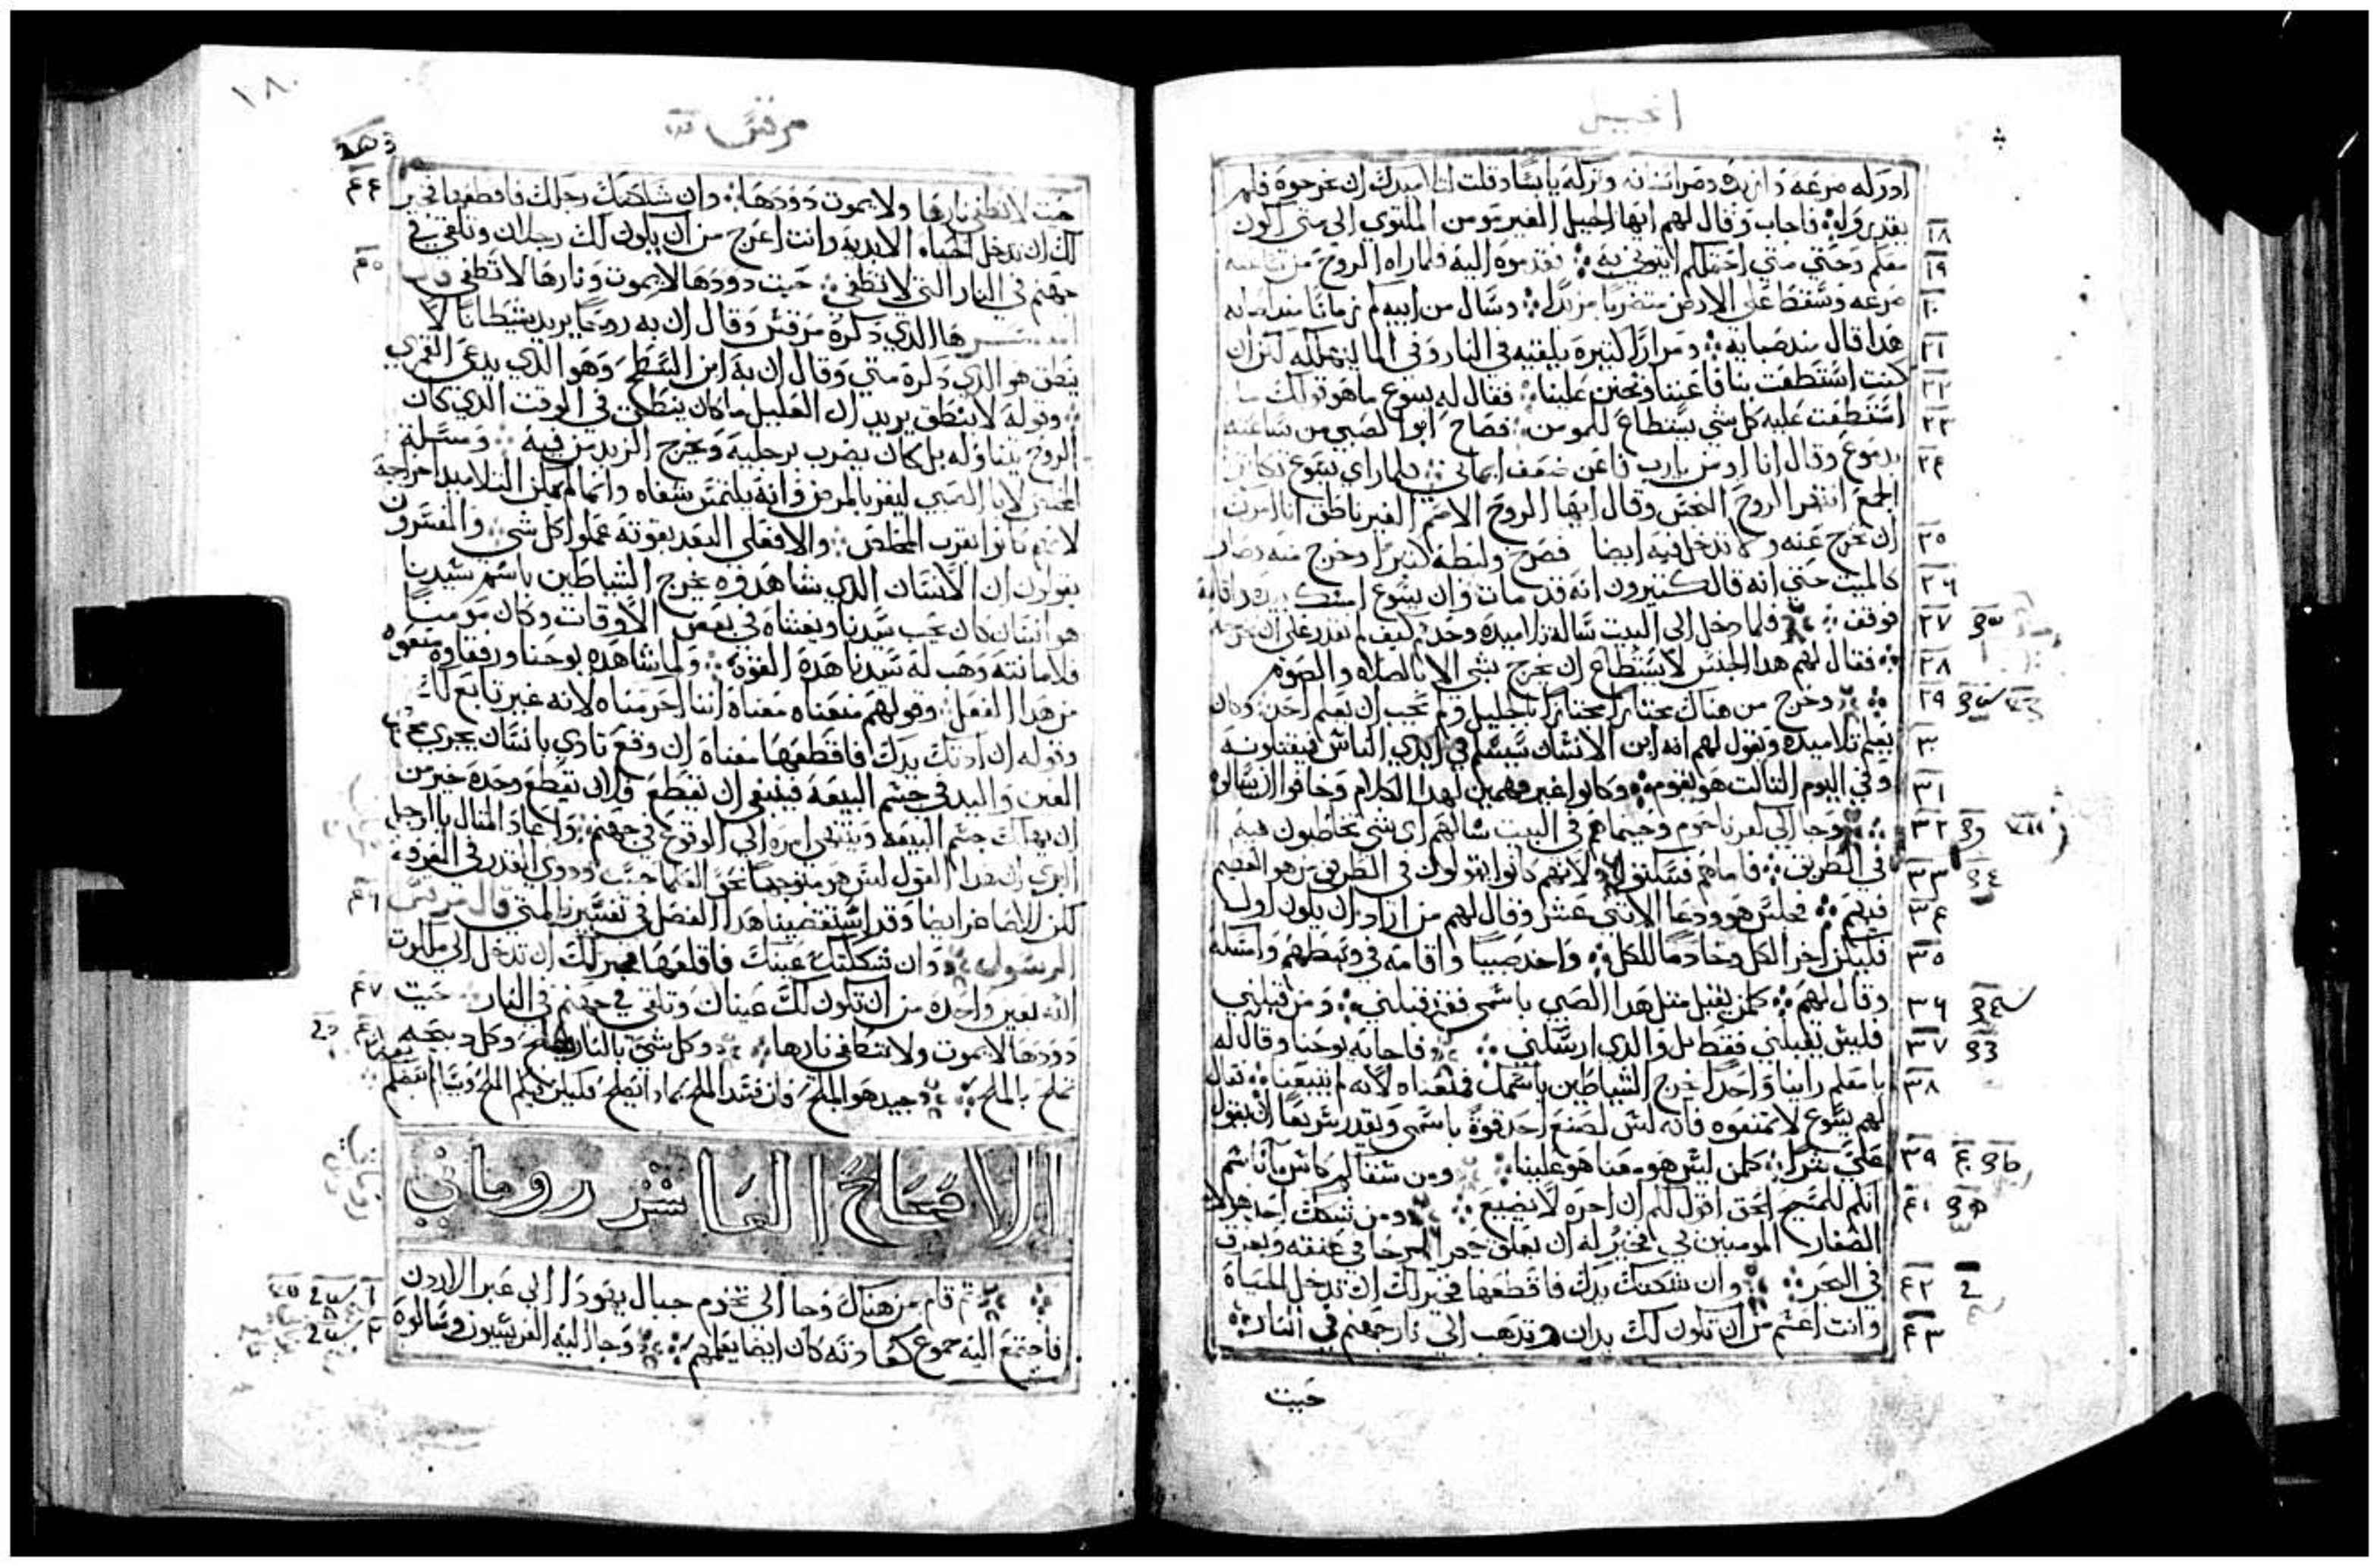 انجيل
ادركه صرعه وازبده وصر اسنانه وتركه يابسا وقلت لتلاميدك ان يخرجوه فلم
١٨ يقدروا له فاجاب وقال لهم ايها الجيل الغير مومن الملتوي الى متى اكون
١٩ معكم وحتي متي احتملكم ايتوني به فقدموه اليه فلما راه الروح من ساعته
٢٠ صرعه وسقط على الارض متضربا مزبدا وسال من ابيه كم زمانا مند اصابه
٢١ هدا قال مند صبايه ومرارا كتيره يلقيه في النار وفي الما ليهلكه لكن ان
٢٢ كنت استطعت شيا فاعيننا وتحنن علينا فقال له يسوع ما هو قولك
٢٣ استطعت عليه كل شي يستطاع للمومن فصاح ابو الصبي من ساعته
٢٤ بدموع وقال انا اومن يارب فاعن ضعف ايماني فلما راي يسوع تكاتر
الجمع انتهر الروح النجس وقال ايها الروح الاصم الغير ناطق انا امرك
٢٥ ان تخرج عنه ولا تدخل فيه ايضا فصرخ ولبطه كتيرا وخرج منه وصار
٢٦ كالميت حتي انه قال كتيرون انه قد مات وان يسوع امسك بيده واقامه
٢٧ فوقف فلما دخل الى البيت ساله تلاميده وحدهم كيف لم نقدر على ان نخرجه
٢٨ فقال لهم هدا الجنس لا يستطاع ان يخرج بشي الا بالصلاه والصوم
٢٩ وخرج من هناك مجتازا بالجليل ولم يحب ان يعلم احد وكان
٣٠ يعلم تلاميده ويقول لهم انه ابن الانسان سيسلم في ايدي الناس فيقتلونه
٣١ وفي اليوم التالت هو يقوم وكانوا غير فهمين لهدا الكلام وخافوا ان يسالوه
٣٢ وجا الى كفرناحوم وحيما هم في البيت سالهم اي شي تخاطبون فيه
٣٣ في الطريق فاما هم فسكتوا لانهم كانوا يقولوا في الطريق من هو العظيم
٣٤ فيهم فجلس هو ودعا الاتني عشر وقال لهم من اراد ان يكون اولا
٣٥ فليكن اخر الكل وخادما للكل واخد صبيا واقامه في وسطهم وامسكه
٣٦ وقال لهم كلمن يقبل متل هدا الصبي باسمي فقد قبلني ومن قبلني
٣٧ فليس يقبلني فقط بل والدي ارسلني فاجابه يوحنا وقال له
٣٨ يا معلم راينا واحدا يخرج الشياطين باسمك فمنعناه لانه لم يتبعنا فقال
لهم يسوع لا تمنعوه فانه ليس يصنع احد قوة باسمي ويقدر سريعا ان يقول
٣٩ علي شرا كلمن ليس هو معنا هو علينا ومن سقاكم كاس ما باسم
٤١ انكم للمسيح الحق اقول لكم ان اجره لا يضيع ومن شكك احد هولا
الصغار المومنين بي فخير له ان يعلق حجر الرحا في عنقه ويغرق
٤٢ في البحر وان شككتك يدك فاقطعها فخير لك ان تدخل الحياة
٤٣ وانت اعسم من ان تكون لك يدان وتدهب الى نار جهنم في النار
حيت
١٨٠
مرقس
٤٤ حيت لا تطفي نارها ولا يموت دودها وان شككتك رجلك فاقطعها فخير
لك ان تدخل الحياه الابديه وانت اعرج من ان يكون لك رجلان وتلقي في
٤٥ جهنم في النار التي لا تطفي حيت دودها لا يموت ونارها لا تطفي
هدا الدي دكره مرقس وقال ان به روحا يريد شيطانا لا
ينطق هو الدي دكره متي وقال ان به ابن السطح وهو الدي يدعى القمري
وقوله لا ينطق يريد ان العليل ما كان ينطق في الوقت الدي كان
الروح يتناوله بل كان يضرب برجليه ويخرج الزبد من فيه وسيله
لابا الصبي ليقر بالمرض فانه يلتمس شفاه وانما لم يمكن التلاميد اخراجه
لانهم كانوا بقرب المخلص والا فعلى البعد بقوته عملوا كل شي والمفسرون
يقولون ان الانسان الدي شاهدوه يخرج الشياطين باسم سيدنا
هو انسان كان يحب سيدنا ويغشاه في بعض الاوقات وكان مومنا
فلامانته وهب له سيدنا هده القوه ولما شاهده يوحنا ورفقاوه منعوه
من هدا الفعل وقولهم منعناه معناه اننا احرمناه لانه غير تابع لنا
وقوله ان ادتك يدك فاقطعها معناه ان وقع تادي بانسان يجري مجرى
العين واليد في جسم البيعه فينبغي ان تقطع ولان يقطع وحده خير من
ان يهلك جسم البيعه وينتهي امره الى الوقوع في جهنم واعاد المتال بالرجل
ليري ان هدا القول ليس هو متوجها نحو العلما حسب ودوي القدر في المعرفه
٤٦ لكن للاصاغر ايضا وقد استقصينا هدا الفصل في تفسيرنا لمتي قال مرقس
الرسول وان شككتك عينك فاقلعها فخير لك ان تدخل الى ملكوت
٤٧ الله بعين واحده من ان تكون لك عينان وتلقي في جهنم في النار حيت
دودها لا يموت ولا تنطفي نارها وكل شي بالنار يملح وكل دبيحه
تملح بالملح جيد هو الملح فان فسد الملح بمادا يملح فليكن فيكم الملح
الاصحاح العاشر روماني
١ تم قام من هناك وجا الى تخوم جبال يهودا الى عبر الاردن
٢ فاجتمع اليه جموع كعادته كان ايضا يعلمهم وجا اليه الفريسيون وسالوه